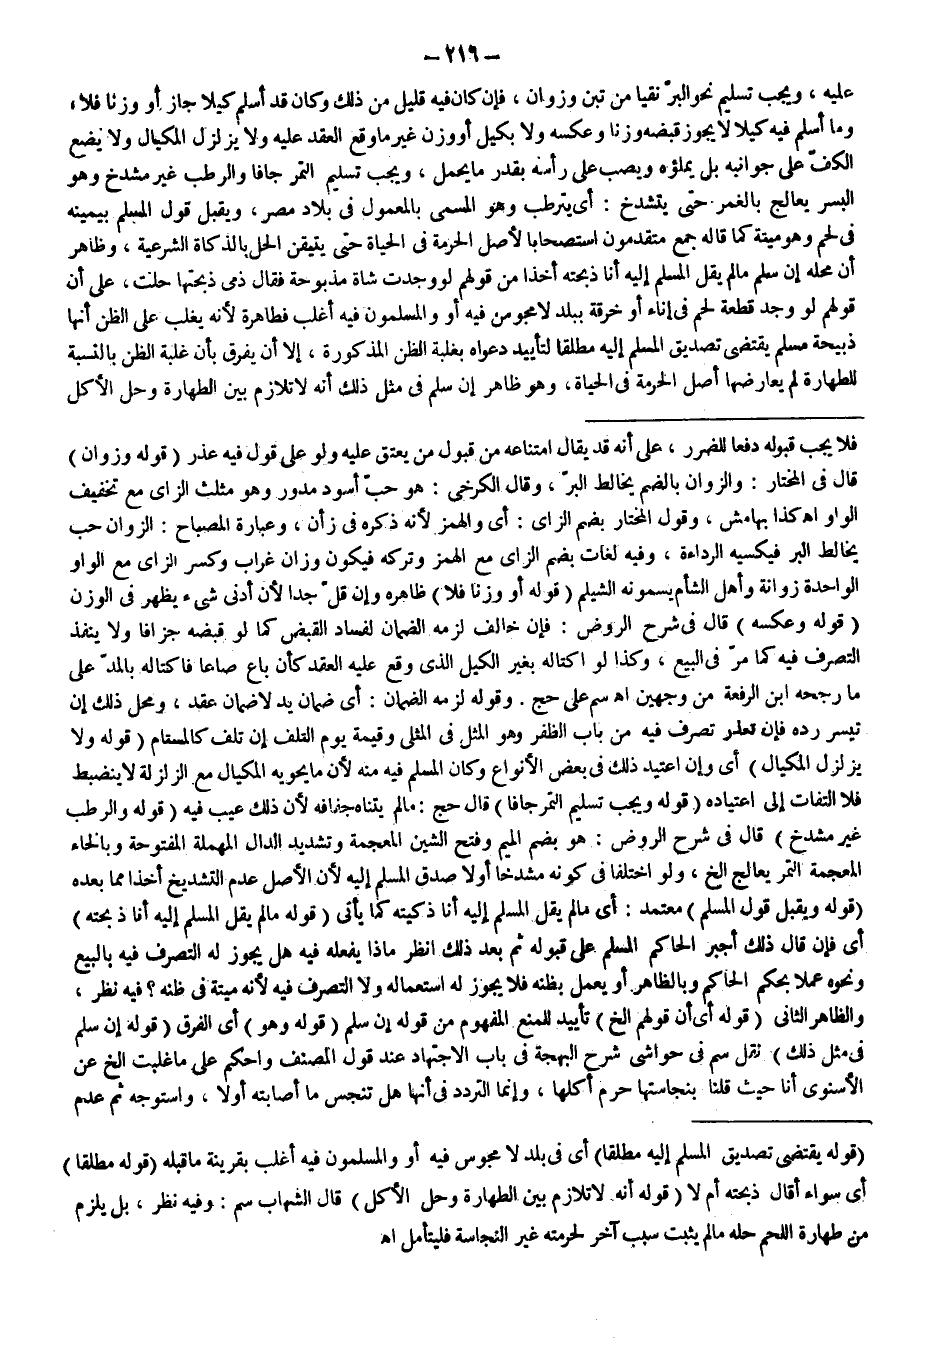 - ٢١٩ -
عليه ، ويجب تسليم نحو البرّ نقيا من تبن وزوان ، فإن كان فيه قليل من ذلك وكان قد أسلم كيلا جاز أو وزنا فلا ،
وما أسلم فيه كيلا لا يجوز قبضه وزنا وعكسه ولا بكيل أو وزن غير ما وقع العقد عليه ولا يزلزل المكيال ولا يضع
الكفّ على جوانبه بل يملؤه ويصب على رأسه بقدر ما يحمل ، ويجب تسليم التمر جافا والرطب غير مشدخ وهو
البسر يعالج بالغمر حتى يتشدخ : أى يترطب وهو المسمى بالمعمول فى بلاد مصر ، ويقبل قول المسلم بيمينه
فى لحم وهو ميتة كما قاله جمع متقدمون استصحابا لأصل الحرمة فى الحياة حتى يتيقن الحل بالذكاة الشرعية ، وظاهر
أن محله إن سلم مالم يقل المسلم إليه أنا ذبحته أخذا من قولهم لو وجدت شاة مذبوحة فقال ذمى ذبحتها حلت ، على أن
قولهم لو وجد قطعة لحم فى إناء أو خرقة ببلد لا مجوس فيه أو والمسلمون فيه أغلب فطاهرة لأنه يغلب على الظن أنها
ذبيحة مسلم يقتضى تصديق المسلم إليه مطلقا لتأييد دعواه بغلبة الظن المذكورة ، إلا أن يفرق بأن غلبة الظن بالنسبة
للطهارة لم يعارضها أصل الحرمة فى الحياة ، وهو ظاهر إن سلم فى مثل ذلك أنه لاتلازم بين الطهارة وحل الأكل
فلا يجب قبوله دفعا للضرر ، على أنه قد يقال امتناعه من قبول من يعتق عليه ولو على قول فيه عذر ( قوله وزوان )
قال فى المختار : والزوان بالضم يخالط البرّ ، وقال الكرخى : هو حبّ أسود مدور وهو مثلث الزاى مع تخفيف
الواو اه كذا بهامش ، وقول المختار بضم الزاى : أى والهمز لأنه ذكره فى زأن ، وعبارة المصباح : الزوان حب
يخالط البر فيكسيه الرداءة ، وفيه لغات بضم الزاى مع الهمز وتركه فيكون وزان غراب وكسر الزاى مع الواو
الواحدة زوانة وأهل الشأم يسمونه الشيلم ( قوله أو وزنا فلا ) ظاهره وإن قلّ جدا لأن أدنى شىء يظهر فى الوزن
( قوله وعكسه ) قال فى شرح الروض : فإن خالف لزمه الضمان لفساد القبض كما لو قبضه جزافا ولا ينفذ
التصرف فيه كما مرّ فى البيع ، وكذا لو اكتاله بغير الكيل الذى وقع عليه العقد كأن باع صاعا فاكتاله بالمدّ على
ما رجحه ابن الرفعة من وجهين اه سم على حج . وقوله لزمه الضمان : أى ضمان يد لا ضمان عقد ، ومحل ذلك إن
تيسر رده فإن تعذر تصرف فيه من باب الظفر وهو المثل فى المثلى وقيمة يوم التلف إن تلف كالمستام ( قوله ولا
يزلزل المكيال ) أى وإن اعتيد ذلك فى بعض الأنواع وكان المسلم فيه منه لأن ما يحويه المكيال مع الزلزلة لا ينضبط
فلا التفات إلى اعتياده ( قوله ويجب تسليم التمر جافا ) قال حج : مالم يتناه جفافه لأن ذلك عيب فيه ( قوله والرطب
غير مشدخ ) قال فى شرح الروض : هو بضم الميم وفتح الشين المعجمة وتشديد الدال المهملة المفتوحة وبالخاء
المعجمة التمر يعالج الخ ، ولو اختلفا فى كونه مشدخا أولا صدق المسلم إليه لأن الأصل عدم التشديخ أخذا مما بعده
(قوله ويقبل قول المسلم) معتمد : أى مالم يقل المسلم إليه أنا ذكيته كما يأتى ( قوله مالم يقل المسلم إليه أنا ذبحته )
أى فإن قال ذلك أجبر الحاكم المسلم على قبوله ثم بعد ذلك انظر ماذا يفعله فيه هل يجوز له التصرف فيه بالبيع
ونحوه عملا بحكم الحاكم وبالظاهر أو يعمل بظنه فلا يجوز له استعماله ولا التصرف فيه لأنه ميتة فى ظنه ؟ فيه نظر ،
والظاهر الثانى ( قوله أى أن قولهم الخ ) تأييد للمنع المفهوم من قوله إن سلم ( قوله وهو ) أى الفرق ( قوله إن سلم
فى مثل ذلك ) نقل سم فى حواشى شرح البهجة فى باب الاجتهاد عند قول المصنف واحكم على ماغلبت الخ عن
الأسنوى أنا حيث قلنا بنجاستها حرم أكلها ، وإنما التردد فى أنها هل تنجس ما أصابته أولا ، واستوجه ثم عدم
(قوله يقتضى تصديق المسلم إليه مطلقا) أى فى بلد لا مجوس فيه أو والمسلمون فيه أغلب بقرينة ماقبله (قوله مطلقا )
أى سواء أقال ذبحته أم لا ( قوله أنه لاتلازم بين الطهارة وحل الأكل ) قال الشهاب سم : وفيه نظر ، بل يلزم
من طهارة اللحم حله مالم يثبت سبب آخر لحرمته غير النجاسة فليتأمل اه